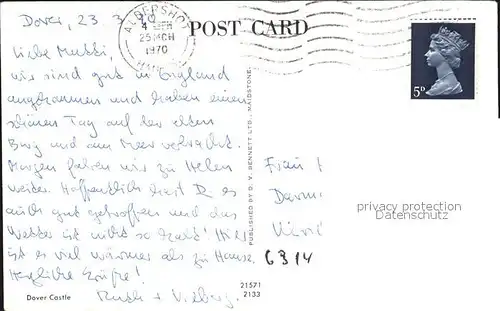 Dover, 23. 3. 70
POST CARD
ALDERSHOT
25 MCH
1970
5D
Liebe Mutti,
wir sind gut in England
angekommen und haben einen
schönen Tag auf der alten
Burg und am Meer verbracht.
Morgen fahren wir zu Helen
weiter. Hoffentlich hast D. es
auch gut getroffen und das
Wetter ist nicht so kalt! Hier
ist es viel wärmer als zu Hause.
Herzliche Grüße!
Ruth +
PUBLISHED BY D. V. BENNETT LTD., MAIDSTONE.
Frau
6314
privacy protection
Datenschutz
Dover Castle
21571
2133